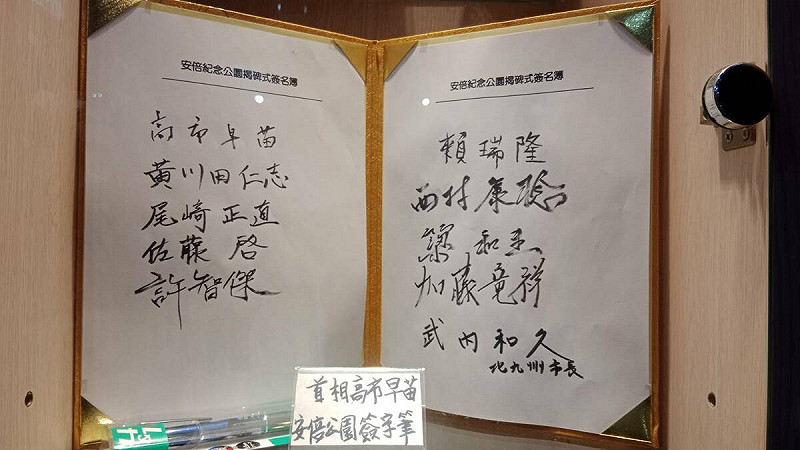 安倍紀念公園揭碑式簽名簿
高市早苗
黃川田仁志
尾﨑正直
佐藤 啓
許智傑
安倍紀念公園揭碑式簽名簿
賴瑞隆
西村康稔
簗 和生
加藤竜祥
武内和久
北九州市長
首相高市早苗
安倍公園簽字筆